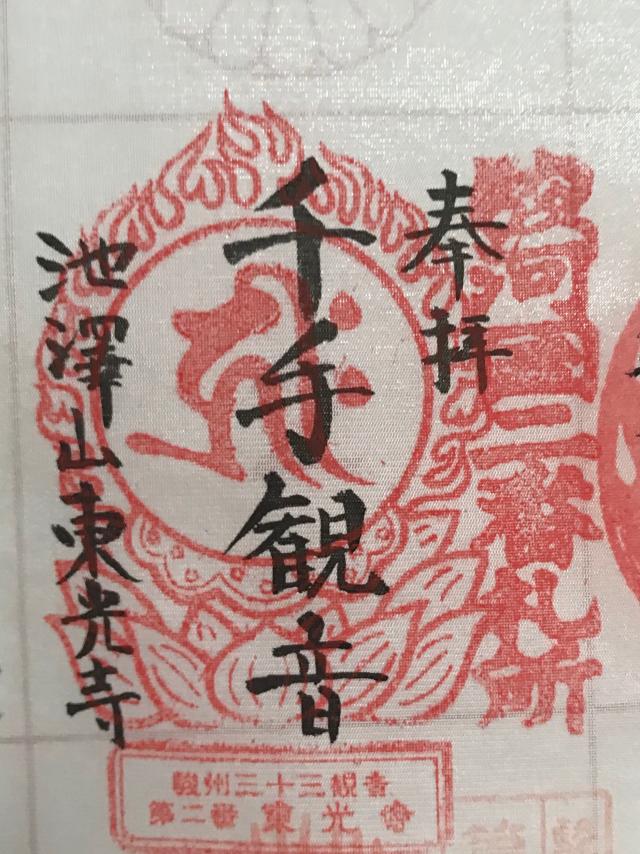 駿河國二番札所
奉拝
千手観音
池澤山東光寺
駿州三十三観音
第二番 東光